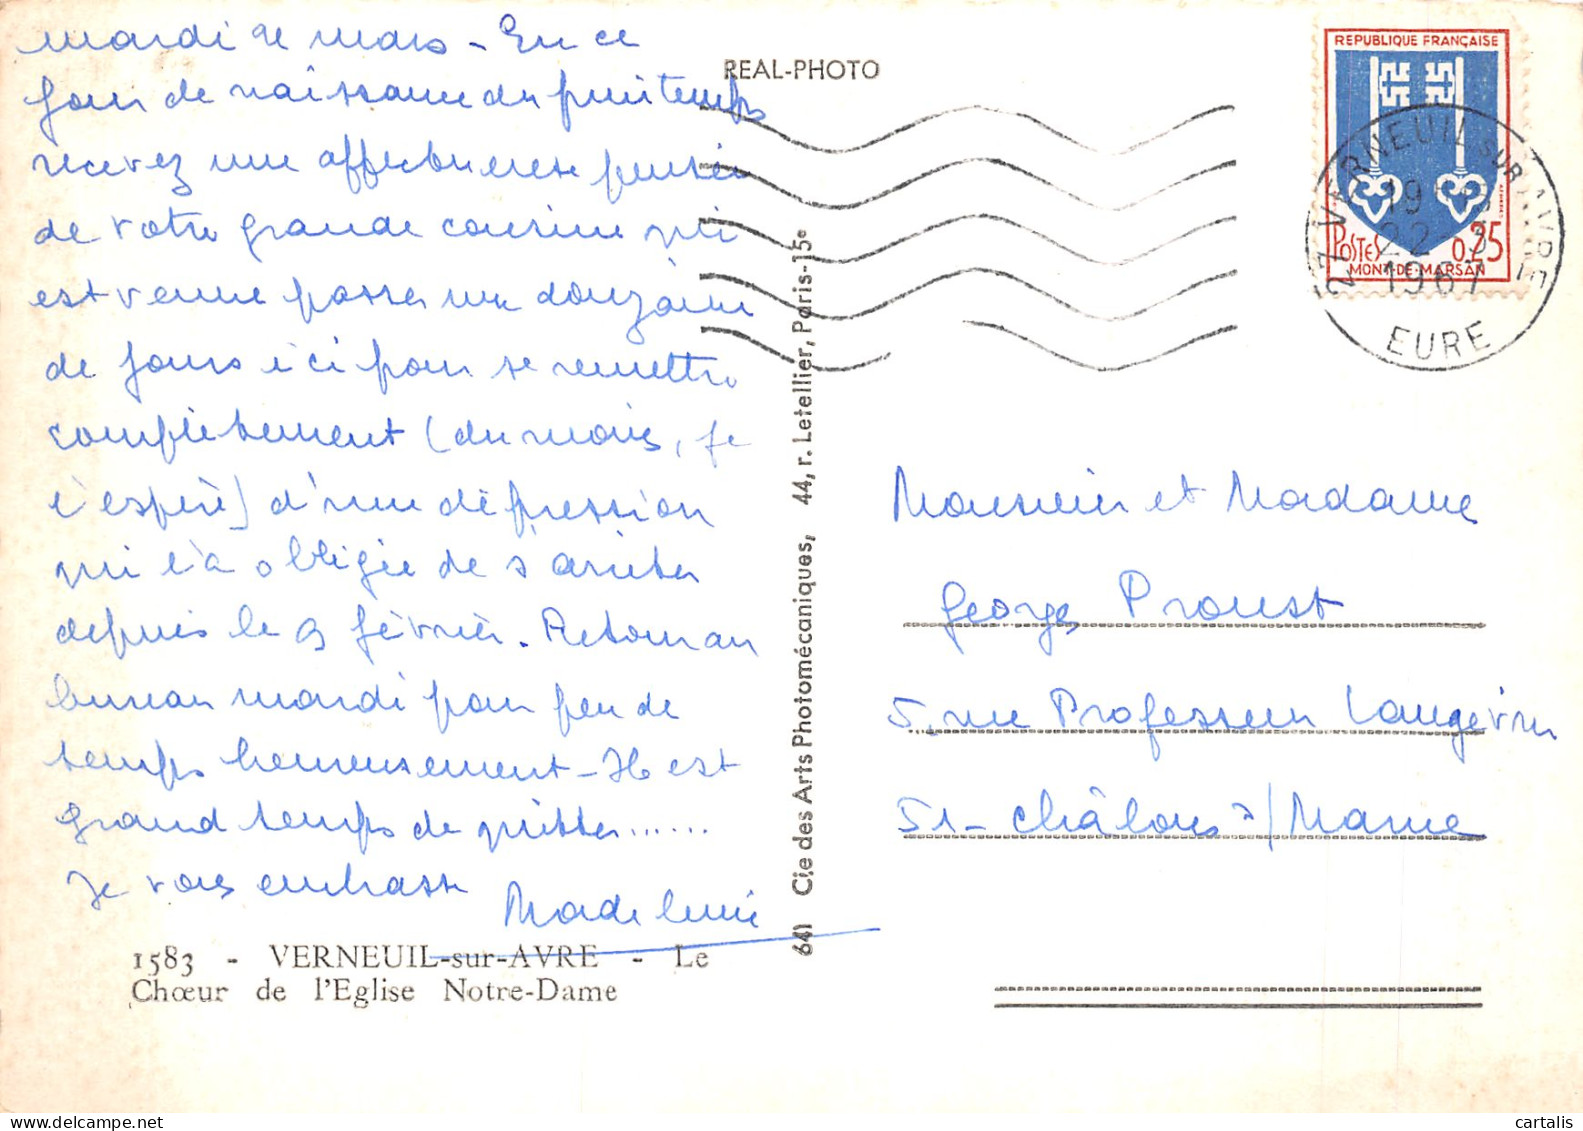 mardi 21 mars - En ce
jour de naissance du printemps
recevez une affectueuse pensée
de votre grande cousine qui
est venue passer une douzaine
de jours ici pour se remettre
complètement (du moins, je
l'espère) d'une dépression
qui l'a obligée de s'arrêter
depuis le 9 février. Retour au
bureau mardi pour peu de
temps heureusement - Il est
grand temps de quitter......
Je vous embrasse
Madeleine
1583 - VERNEUIL-sur-AVRE - Le
Chœur de l'Eglise Notre-Dame
REAL-PHOTO
641 Cie des Arts Photomécaniques, 44, r. Letellier, Paris-15e
REPUBLIQUE FRANÇAISE
POSTES 0,25
MONT-DE-MARSAN
27 VERNEUIL SUR AVRE
22-3
1967
EURE
Monsieur et Madame
Georges Proust
5, rue Professeur Langevin
51- Châlons s/Marne
cartalis